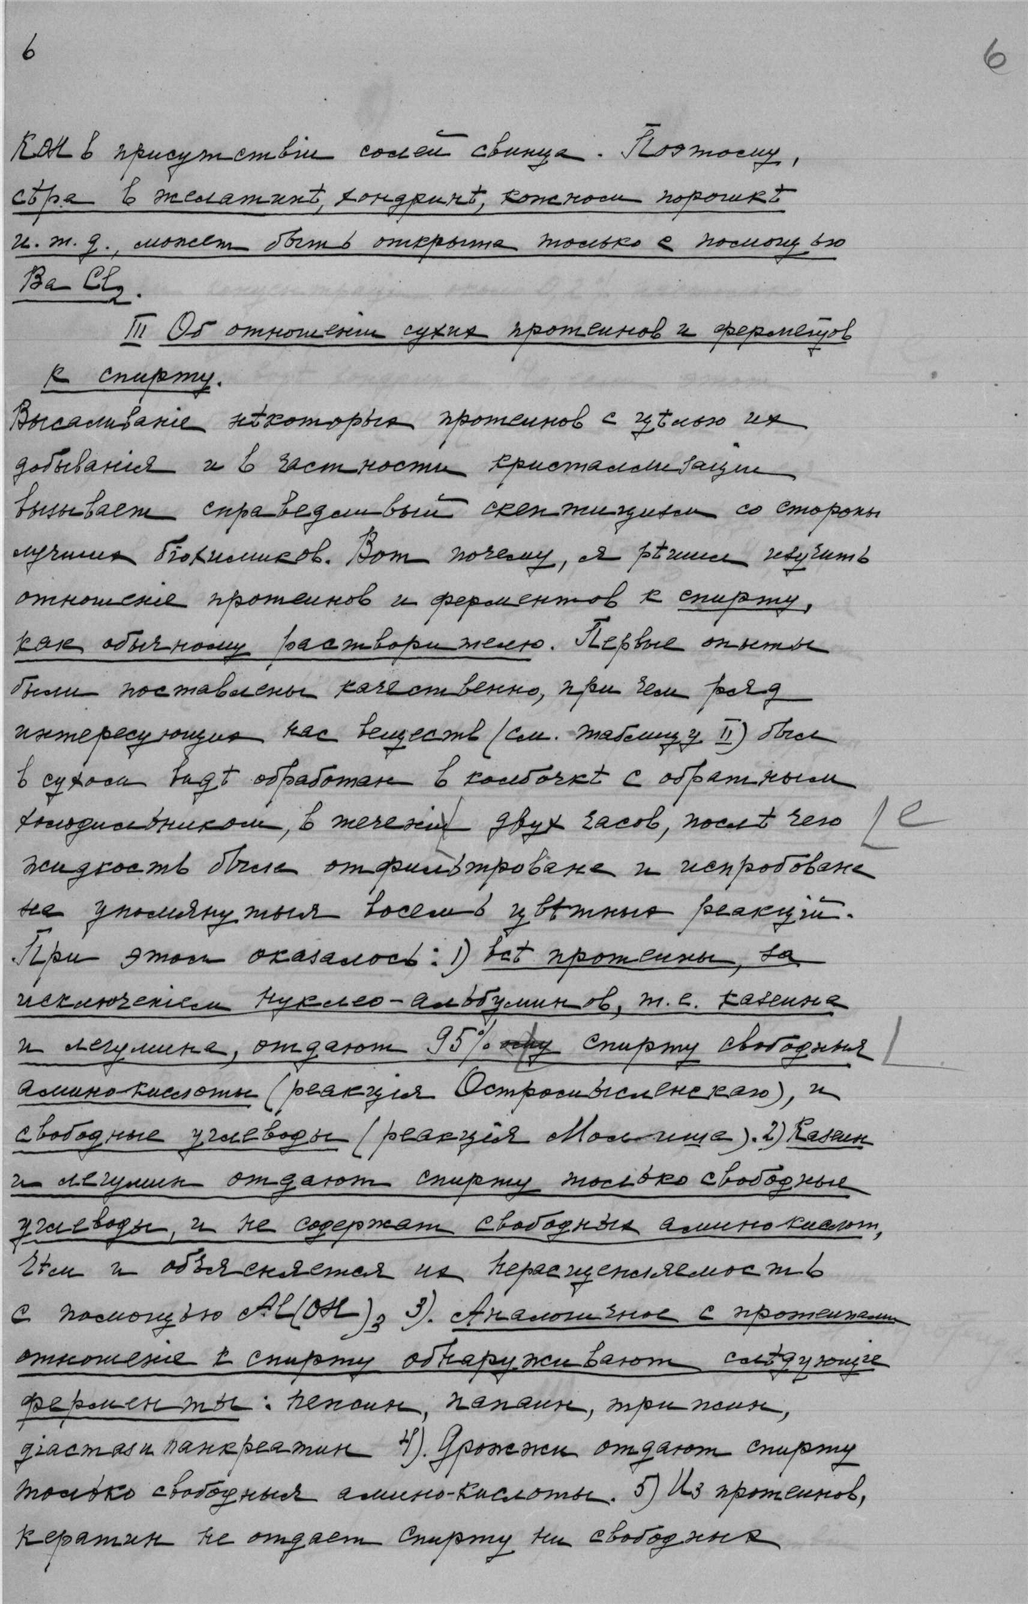 6
6
КОН в присутствіи солей свинца. Поэтому,
сѣра в желатинѣ, хондринѣ, кожном порошкѣ
и.т.д., может быть открыта только с помощью
Ba Cl2.
III Об отношеніи сухих протеинов и ферментов
к спирту.
Высаливаніе нѣкоторых протеинов с цѣлью их
добыванія и в частности кристаллизаціи
вызывает справедливый скептицизм со стороны
лучших біохимиков. Вот почему, я рѣшил изучить
отношеніе протеинов и ферментов к спирту,
как обычному растворителю. Первые опыты
были поставлены качественно, при чем ряд
интересующих нас веществ (см. таблицу II) был
в сухом видѣ обработан в колбочкѣ с обратным
холодильником, в теченіи двух часов, послѣ чего
е
жидкость была отфильтрована и испробована
на упомянутыя восемь цвѣтных реакцій.
При этом оказалось: 1) всѣ протеины, за
исключеніем нуклео-альбуминов, т.е. казеина
и легумина, отдают 95% спирту свободныя
амино-кислоты (реакція Остромысленскаго), и
свободные углеводы (реакція Молиша). 2) Казеин
и легумин отдают спирту только свободные
углеводы, и не содержат свободных амино-кислот,
чѣм и объясняется их нерасщепляемость
с помощью Al(OH)3 3). Аналогичное с протеинами
отношеніе к спирту обнаруживают слѣдующіе
ферменты: пепсин, папаин, трипсин,
діастаз и панкреатин 4). Дрожжи отдают спирту
только свободныя амино-кислоты. 5) Из протеинов,
кератин не отдает спирту ни свободных